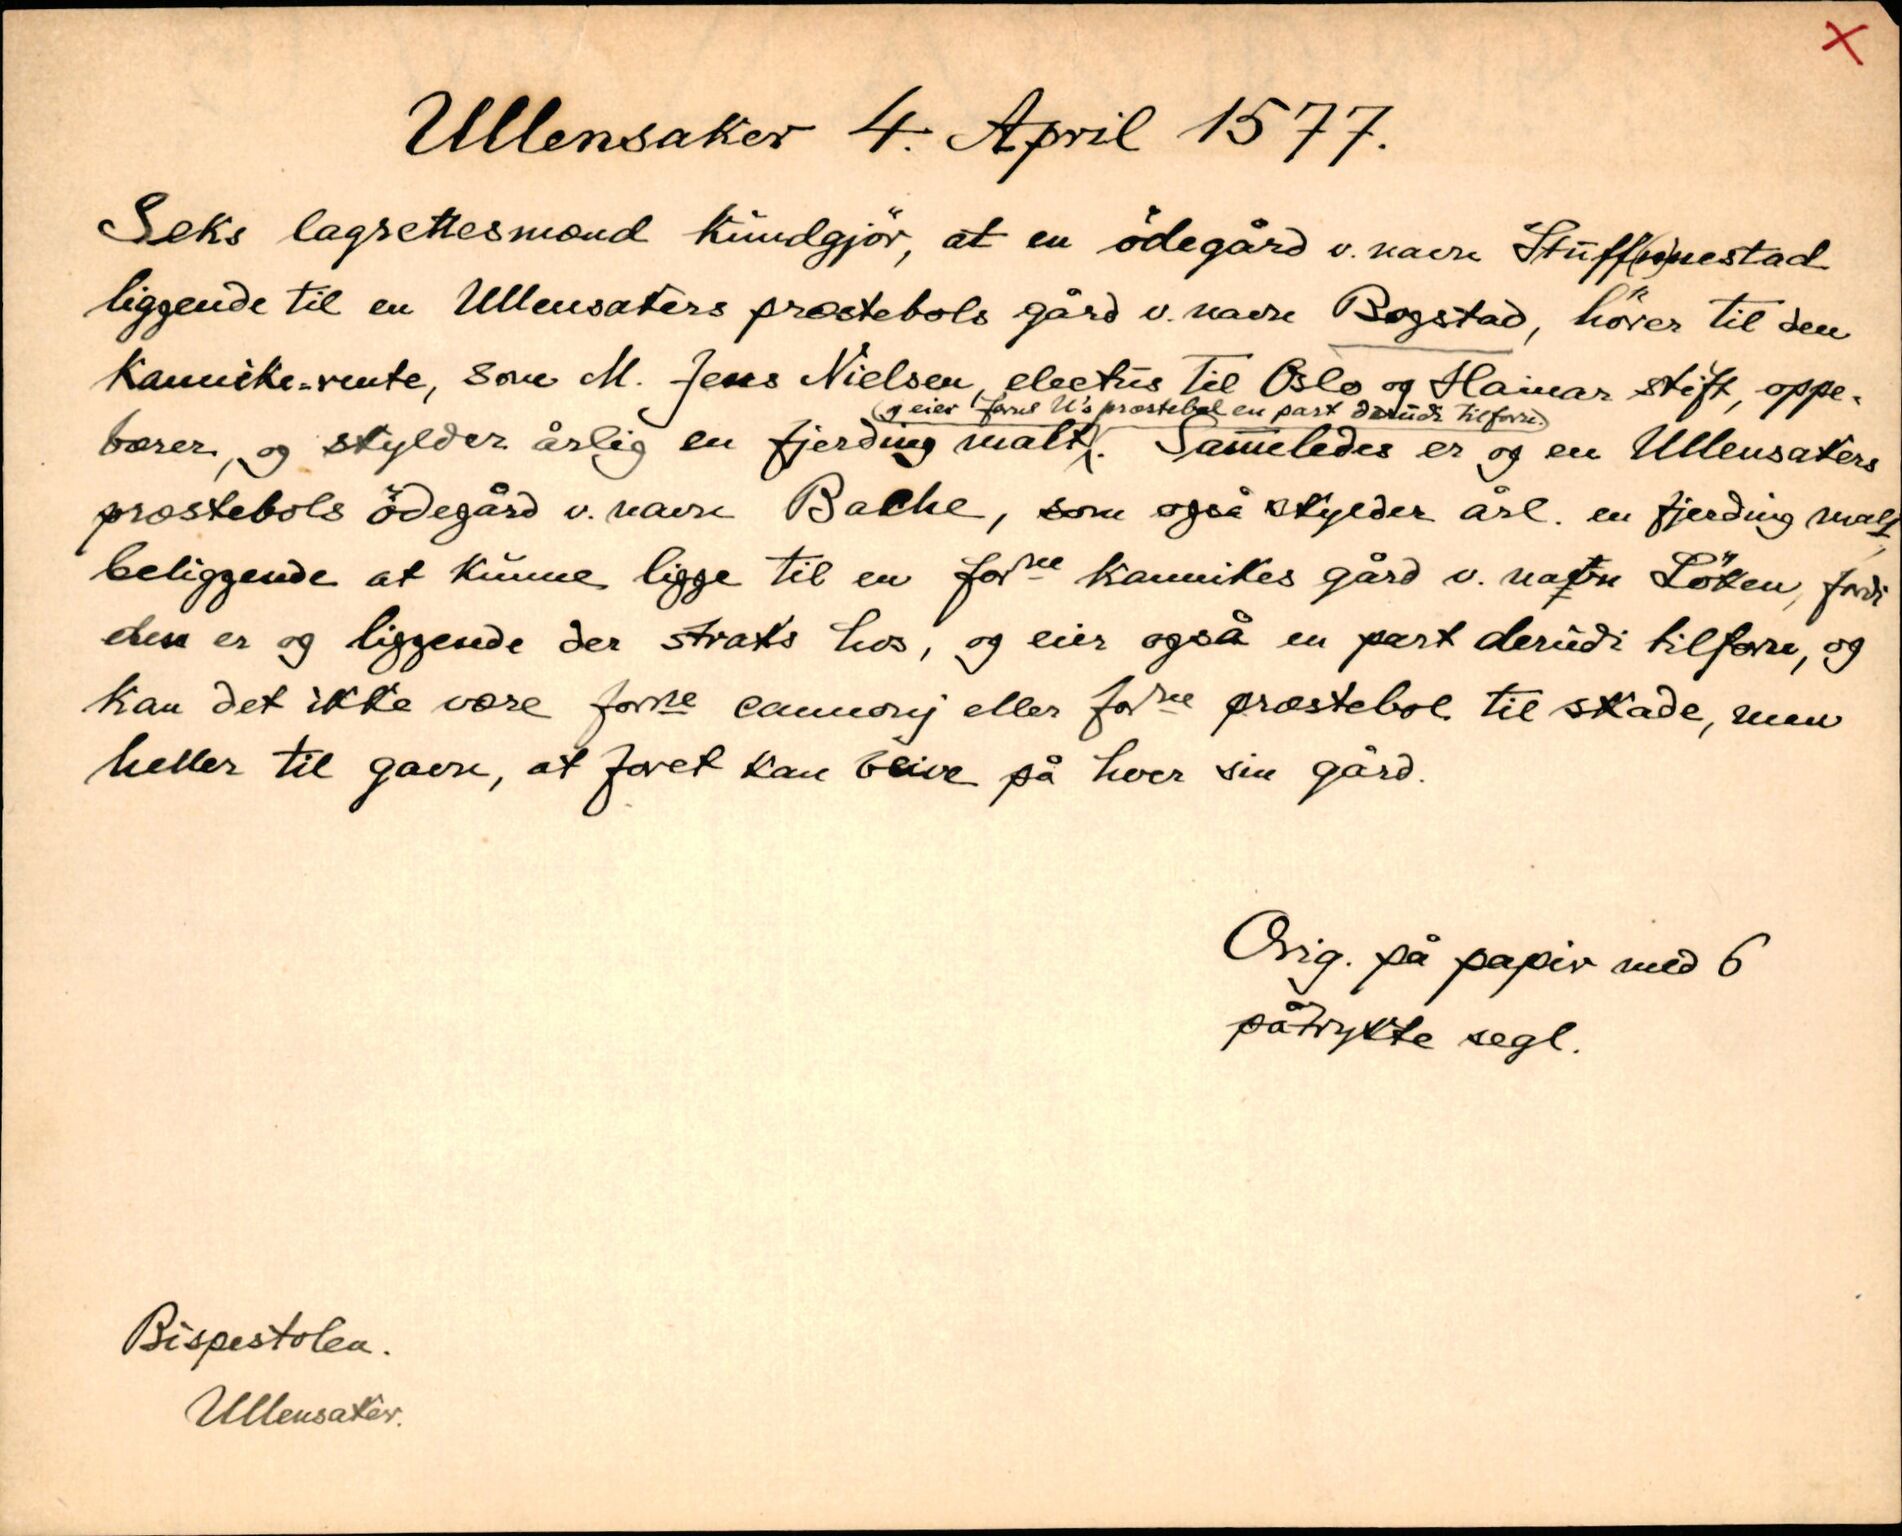 X
Ullensaker 4. April 1577.
Seks lagrettesmænd kundgjör, at en ödegård v. navn Stuff(n)nestad
liggende til en Ullensakers præstebols gård v. navn Bogstad, hörer til den
Kannike-rente, som M. Jens Nielsen, electus til Oslo og Hamar stift, oppe-
(og eier forne U's præstebol en part derudi tilforn)
bærer, og skylder årlig en fjerding malt. Sammeledes er og en Ullensakers
præstebols ödegård v. navn Bache, som også skylder årl. en fjerding malt,
beliggende at kunne ligge til en forne kannikes gård v. navn Löken, fordi
den er og liggende der straks hos, og eier også en part derudi tilforn, og
kan det ikke være forne cannonij eller forne præstebol til skade, men
heller til gavn, at foret kan blive på hver sin gård.
Orig. på papir med 6
påtrykte segl.
Bispestolen.
Ullensaker.